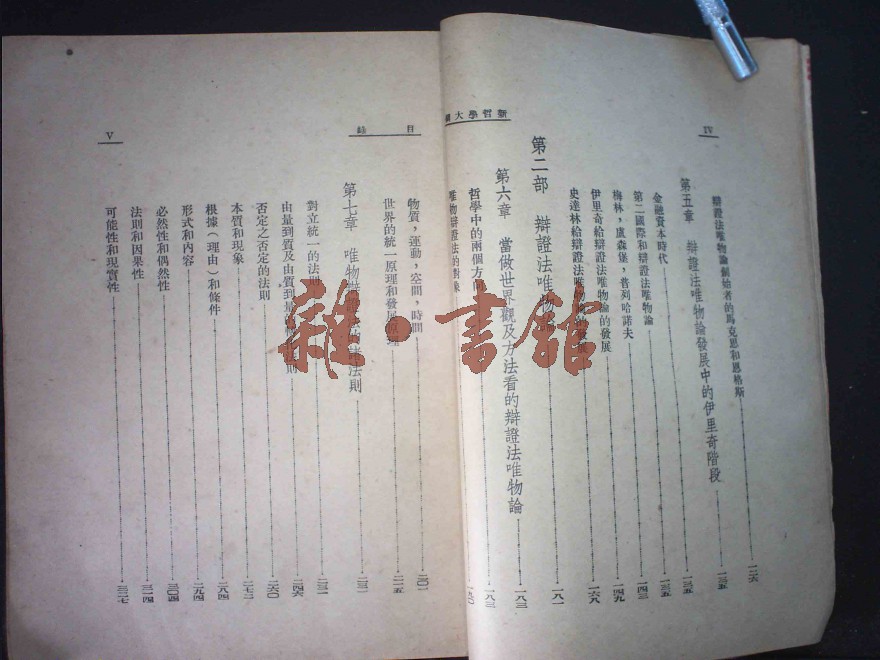 新哲學大
IV
辯證法唯物論創始者的馬克思和恩格斯 一二六
第五章 辯證法唯物論發展中的伊里奇階段 一三五
金融資本時代 一三五
第二國際和辯證法唯物論 一四三
梅林，盧森堡，普列哈諾夫 一四九
伊里奇給辯證法唯物論的發展 一六八
史達林給辯證法唯物論的發展
第二部 辯證法唯物論 一八一
第六章 當做世界觀及方法看的辯證法唯物論 一八三
哲學中的兩個方向 一八三
唯物辯證法的對象 一九〇
目錄
V
物質，運動，空間，時間 二〇一
世界的統一原理和發展原理 二一五
第七章 唯物辯證法的諸法則 二三一
對立統一的法則 二三一
由量到質及由質到量的轉變法則 二四六
否定之否定的法則 二六〇
本質和現象 二七二
根據（理由）和條件 二八四
形式和內容 二九四
必然性和偶然性 三〇四
法則和因果性 三一四
可能性和現實性 三二七
雜·書館